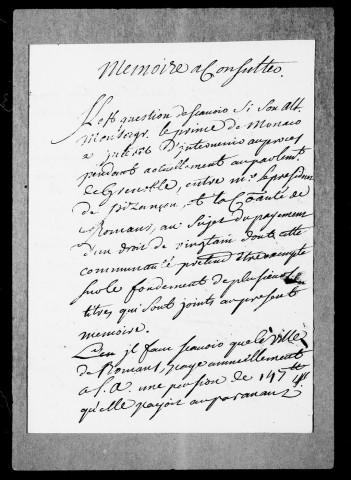 Memoire a Consulter.
Il est question de scavoir si son alt.
monseigr. le prince de Monaco
a interest d'intervenir au proces
pendant actuellement au parlemt.
de Grenoble, entre mr. le president
de Pizançon, et la Coãuté de
Romans, au sujet du payement
d'un droit de vingtain dont cette
communauté pretend être exempte
sur le fondement de plusieurs
titres qui sont joints au present
memoire.
il faut scavoir que la ville
de Romans, paye annuellement
a S. A. une pension de 147
qu'elle payoit auparavant